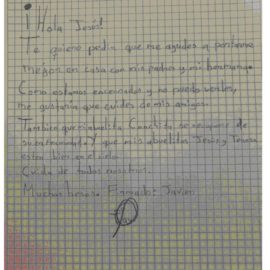 ¡Hola Jesús!
Te quiero pedir que me ayudes a portarme
mejor en casa con mis padres y mi hermana.
Como estamos encerrados y no puedo verlos,
me gustaría que cuides de mis amigos.
También que mi abuelita Conchita se recupere de
su enfermedad. Y que mis abuelitos Jesús y Teresa
estén bien en el cielo.
Cuida de todos nosotros.
Muchos besos. Firmado: Javier